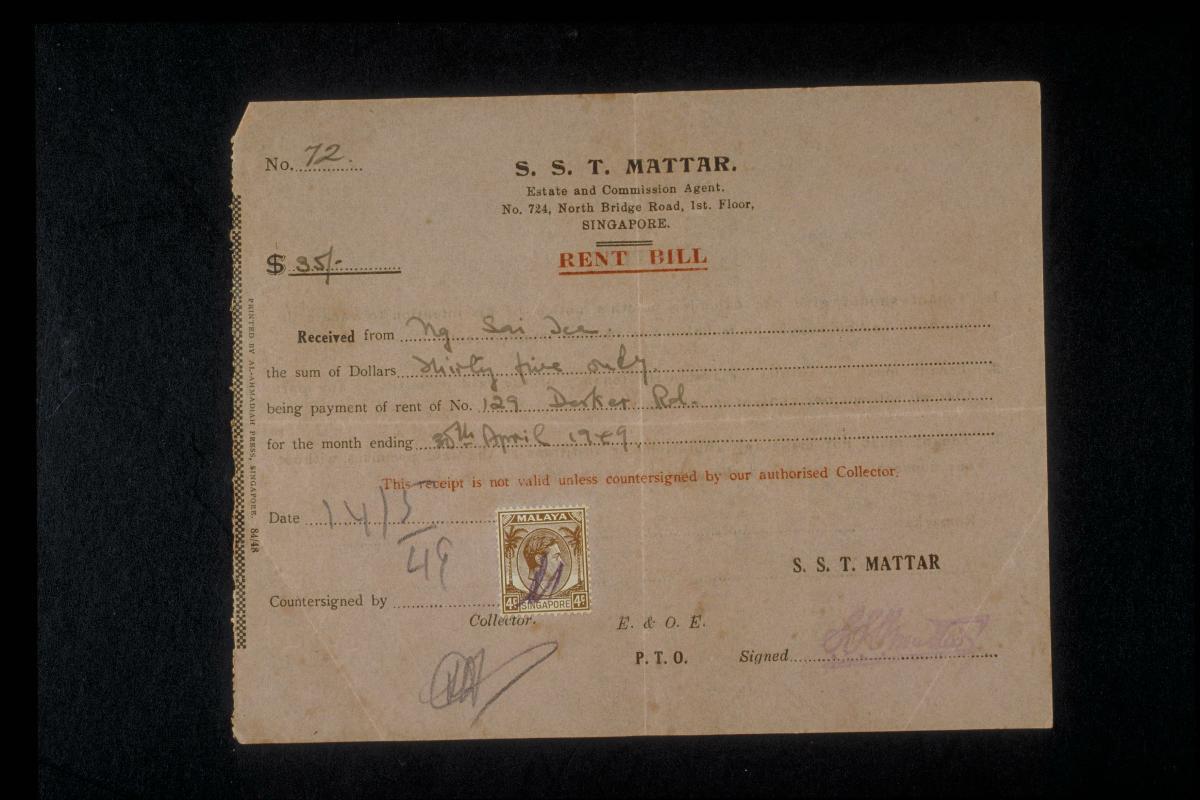 No. 72.
S. S. T. MATTAR.
Estate and Commission Agent.
No. 724, North Bridge Road, 1st. Floor,
SINGAPORE.
$ 35/-
RENT BILL
Received from Ng Sai
the sum of Dollars Thirty five only.
being payment of rent of No. 129 Desker Rd.
for the month ending 30th April 1949.
This receipt is not valid unless countersigned by our authorised Collector.
Date 14/5/49
MALAYA
4c SINGAPORE 4c
S. S. T. MATTAR
Countersigned by
Collector.
E. & O. E.
P. T. O.
Signed
PRINTED BY AL-AHMADIAH PRESS, SINGAPORE. 84/48